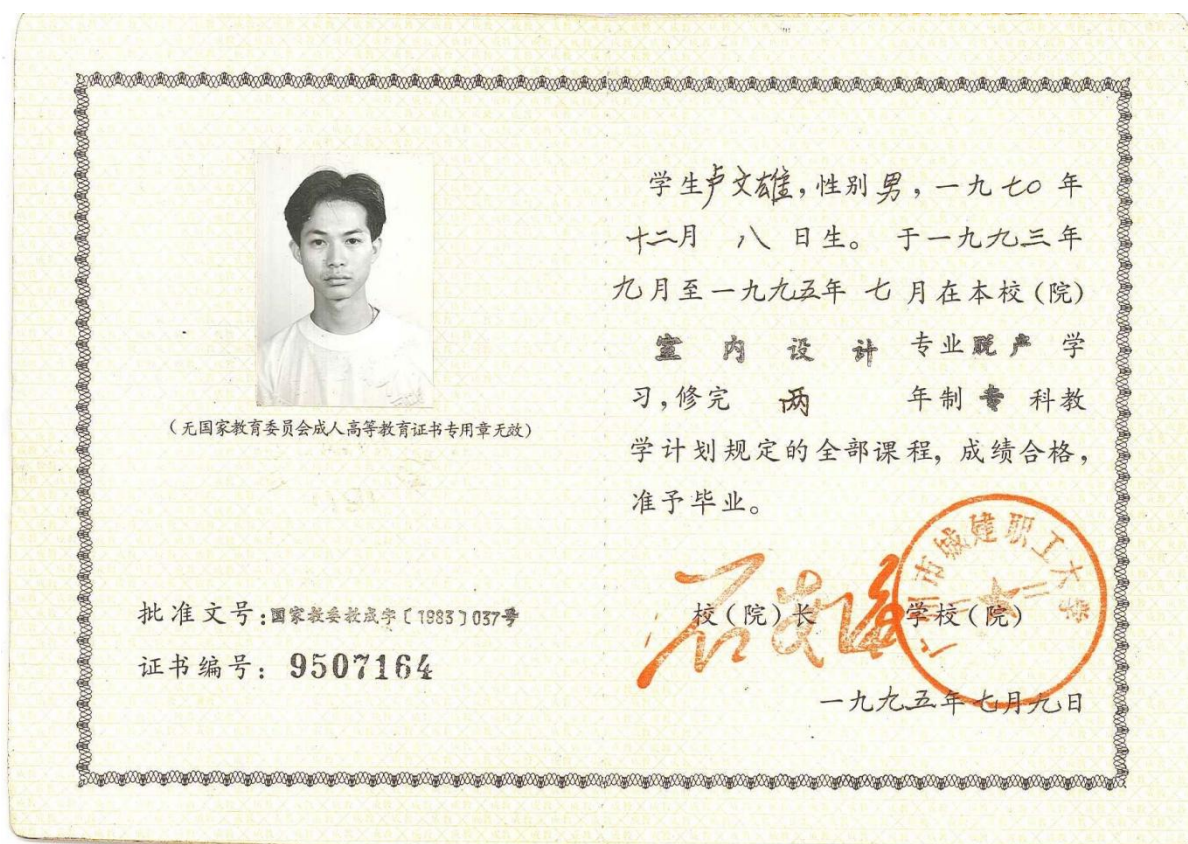 (无国家教育委员会成人高等教育证书专用章无效)
批准文号:国家教委教成字〔1983〕037号
证书编号: 9507164
学生卢文雄,性别男,一九七〇年
十二月 八 日生。 于一九九三年
九月至一九九五年 七 月在本校(院)
室 内 设 计 专业脱产 学
习,修完 两 年制 专 科教
学计划规定的全部课程, 成绩合格,
准予毕业。
校(院)长 学校(院)
广州市城建职工大学
一九九五年七月九日